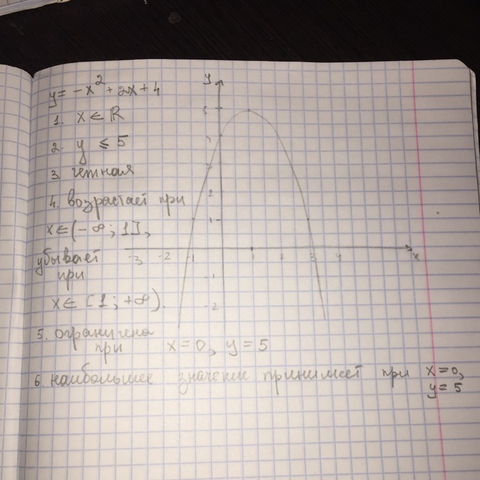 y = -x² + 2x + 4
1. x ∈ R
2. y ≤ 5
3. четная
4. возрастает при
x ∈ (-∞; 1],
убывает
при
x ∈ [1; +∞).
5. ограничена
при x = 0, y = 5
6. наибольшее значение принимает при x = 0,
y = 5
y
x
-3 -2 -1 1 3 4
1
-1
-2